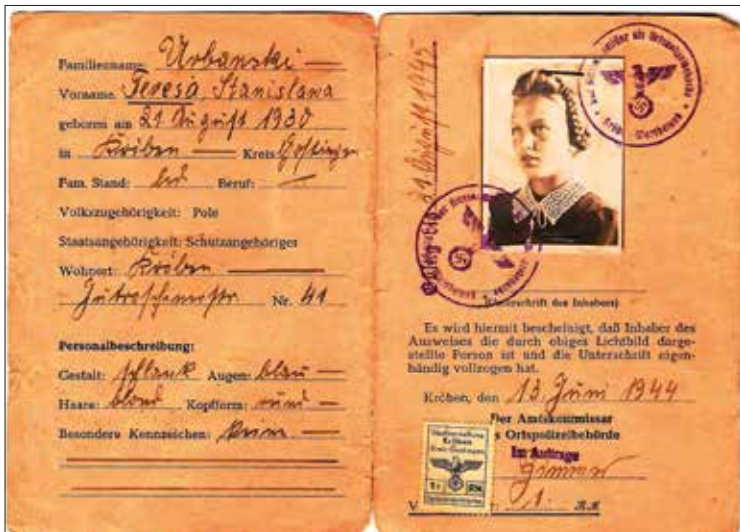 Familienname: Urbanski —
Vorname: Teresa, Stanislawa
geboren am 21 August 1930
in Kröben — Kreis: Gostingen
Fam. Stand: led Beruf: —
Volkszugehörigkeit: Pole
Staatsangehörigkeit: Schutzangehöriger
Wohnort: Kröben —
Nr. 41
Personalbeschreibung:
Gestalt: schlank Augen: blau —
Haare: blond Kopfform: rund —
Besondere Kennzeichen: keine —
21 August 1945
(Unterschrift des Inhabers)
Es wird hiermit bescheinigt, daß Inhaber des
Ausweises die durch obiges Lichtbild darge-
stellte Person ist und die Unterschrift eigen-
händig vollzogen hat.
Kröben, den 13. Juni 1944
Der Amtskommissar
Ortspolizeibehörde
Im Auftrage
Kröben
Kreis Gostingen
1 RM